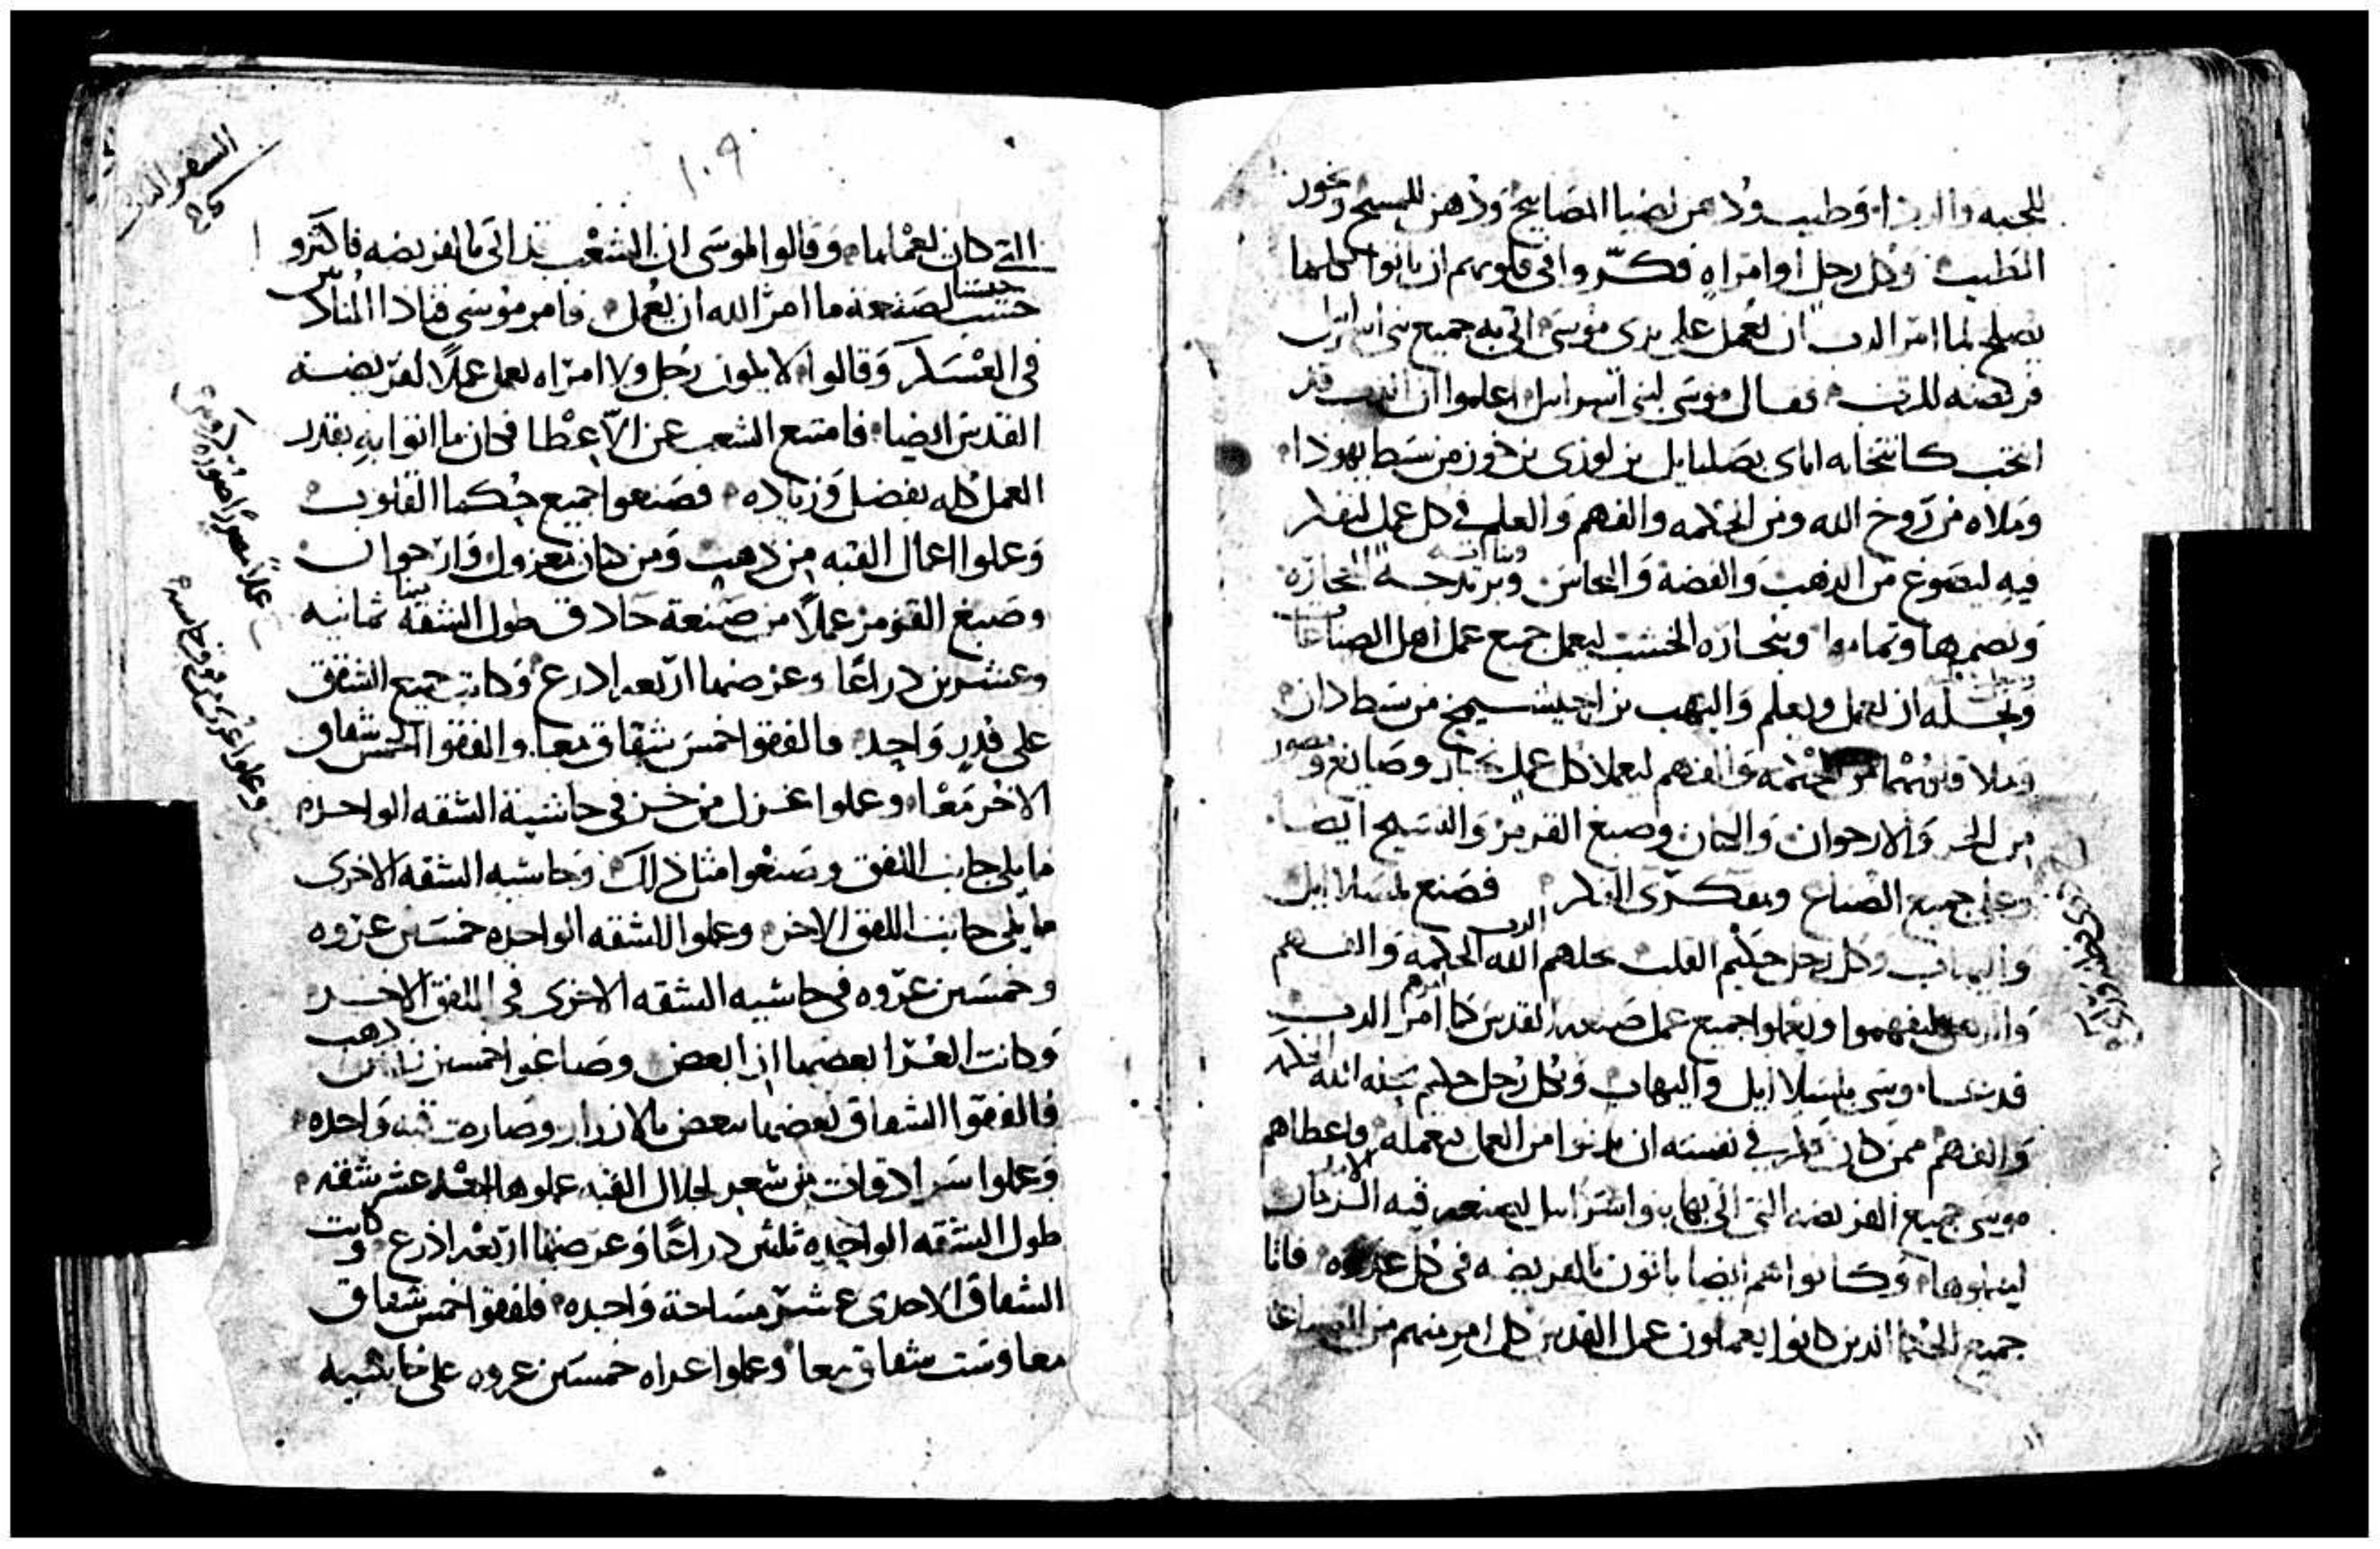 للجبه والردا وطيب ودهن لضيا المصابيح ودهن للمسيح وبخور
الطيب وكل رجل او امراه فكروا في قلوبهم ان ياتوا كلما
يصلح لما امر الرب ان يعمل على يدى موسى اتى به جميع بنى اسرايل
فريضه للرب فقال موسى لبنى اسرايل اعلموا ان الرب قد
انتخب كانتخابه اياى بصلياييل بن اورى بن حور من سبط يهوذا
وملاه من روح الله ومن الحكمه والفهم والعلم فى كل عمل ليفكر
فيه ليصوغ من الذهب والفضه والنحاس الحجاره
ونجاره الخشب ليعمل جميع عمل اهل الصناعات
ان يعمل ويعلم واليهب بن احيشيمخ من سبط دان
وملا قلوبهما من الحكمه والفهم ليعملا كل عمل نجار وصايغ
من الخز والارجوان والكتان وصبغ القرمز والنسيج ايضا
وعلى جميع الصناع ويفكرى الفكر فصنع بلسلاايل
واليهاب وكل رجل حكيم القلب الله الحكمه والفهم
ليفهموا ويعملوا جميع عمل صنعه القدس كما امر الرب
فدعا موسى بلسلاايل واليهاب وكل رجل حكيم الله الحكمه
والفهم ممن كان فكر فى نفسه ان يدنوا من العمل ليعمله واعطاهم
موسى جميع الفريضه التى اتى بها بنوا اسرايل لصنعه قبه الزمان
ليعملوها وكانوا هم ايضا ياتون بالفريضه فى كل غدوه فاتا
جميع الحكما الذين كانوا يعملون عمل القدس كل امر منهم من الصناعا
١٠٩
السفر الثانى
التى كان يعملها وقالوا لموسى ان الشعب قد اتى بالفريضه فاكثروا
حسب لصنعة ما امر الله ان يعمل فامر موسى فنادا المناد
فى العسكر وقالوا لا يكون رجل ولا امراه يعمل عملا لفريضة
القدس ايضا فامتنع الشعب عن الاعطا فكان ما اتوا به بقدر
العمل كله بفضل وزياده فصنعوا جميع حكما القلوب
وعملوا اعمال القبه من ذهب ومن كتان مغزول وارجوان
وصبغ القرمز عملا من صنعة حاذق طول الشقة ثمانيه
وعشرين دراعا وعرضها اربعه ادرع وكانت جميع الشقق
على قدر واحد فالفقوا خمس شقاق معا والفقوا الخمس شقاق
الاخر معا وعملوا غزل من خز فى حاشية الشقه الواحده
ما يلى جانب اللفق وصنعوا مثل ذلك فى حاشيه الشقه الاخرى
ما يلى جانب اللفق الاخر وعملوا للشقه الواحده خمسين عروه
وخمسين عروه فى حاشيه الشقه الاخرى فى اللفق الاخر
وكانت العرا بعضها ازا بعض وصاغوا خمسين ذهب
فالفقوا الشقاق بعضها ببعض بالازرار وصارت قبه واحده
وعملوا سرادقات من شعر لجلال القبه عملوها احد عشر شقه
طول الشقه الواحده ثلثين دراعا وعرضها اربعه ادرع وكانت
الشقاق الاحدى عشر مساحة واحده فلفقوا خمس شقاق
معا وست شقاق معا وعملوا عراه خمسين عروه على حاشيه